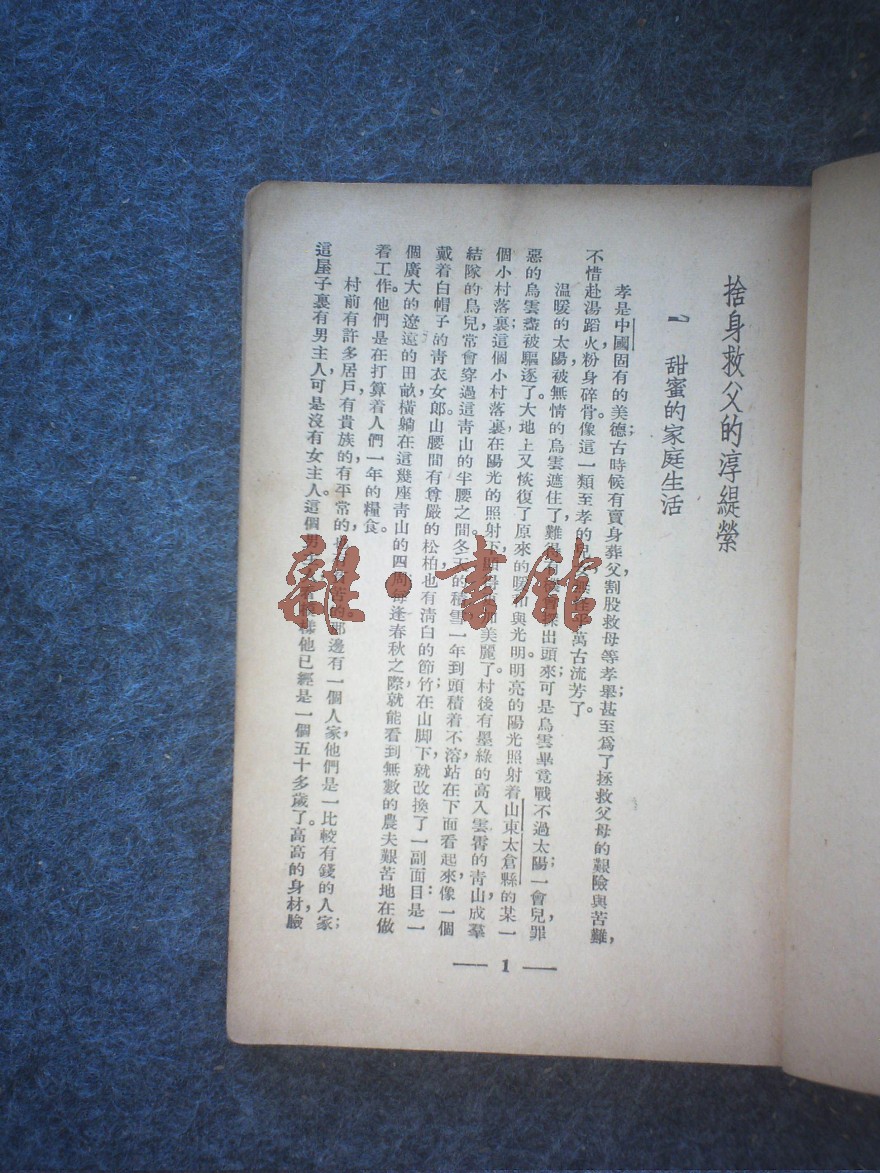 捨身救父的淳緹縈
一 甜蜜的家庭生活
孝是中國固有的美德古時候有賣身葬父，割股救母等孝舉；甚至爲了拯救父母的艱險與苦難，
不惜赴湯蹈火，粉身碎骨。像這一類至孝的兒女，萬古流芳了。
溫暖的太陽，被無情的烏雲遮住了，難得有探出頭來；可是烏雲畢竟戰不過太陽，一會兒，罪
惡的烏雲盡被驅逐了。大地上又恢復了原來的暖和與光明。明亮的陽光照射着山東太倉縣的某一
個小村落裏；這個小村落裏，在陽光的照射下，美麗了。村後有墨綠的高入雲霄的青山，成羣
結隊的鳥兒，常會穿過這青山的半腰之間。冬天的積雪一年到頭積着不溶，站在下面看起來，像一個
戴着白帽子的青衣女郎。山腰間有尊嚴的松柏，也有淸白的節竹；在山脚下就改換了一副面目：是一
個廣大的遼遠的田畝，橫躺在這幾座青山的四周。每逢春秋之際，就能看到無數的農夫，艱苦地在做
着工作。他們是在打算着人們一年的糧食。
村前有許多居戶，有貴族的，有平常的，那邊有一個人家，他們是一比較有錢的人家；
這屋子裏有男主人，可是沒有女主人。這個男他已經是一個五十多歲了。高高的身材，臉
— 1 —
雜·書館